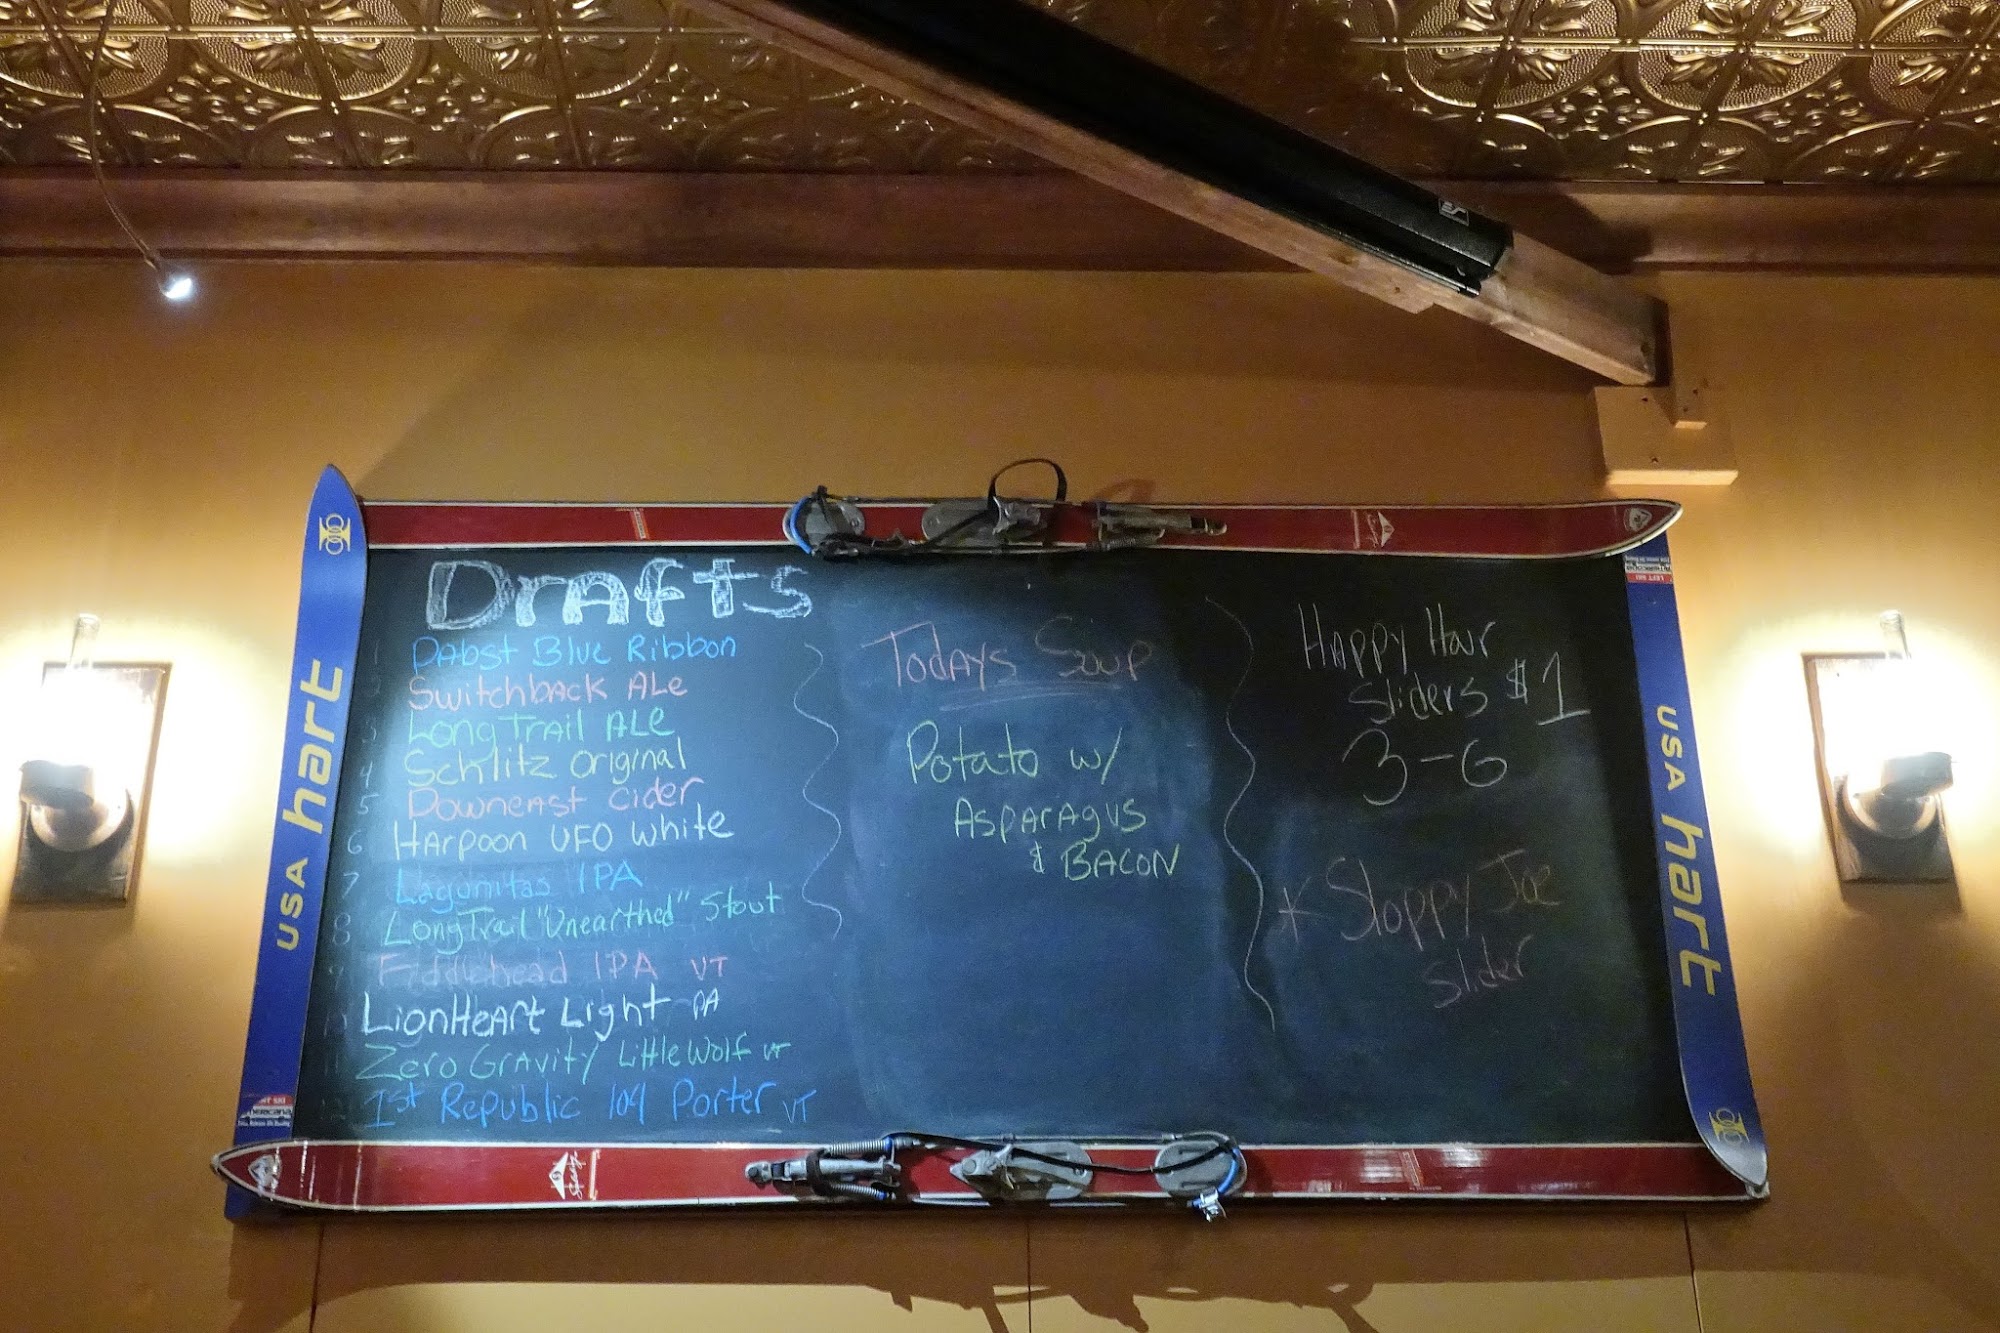 Drafts
1 Pabst Blue Ribbon
2 Switchback Ale
3 Long Trail Ale
4 Schlitz Original
5 Downeast Cider
6 Harpoon UFO White
7 Lagunitas IPA
8 Long Trail "Unearthed" Stout
9 Fiddlehead IPA VT
10 LionHeart Light PA
11 Zero Gravity Little Wolf VT
12 1st Republic 104 Porter VT
Todays Soup
Potato w/
Asparagus
& Bacon
Happy Hour
Sliders $1
3-6
* Sloppy Joe
Slider
USA hart
USA hart